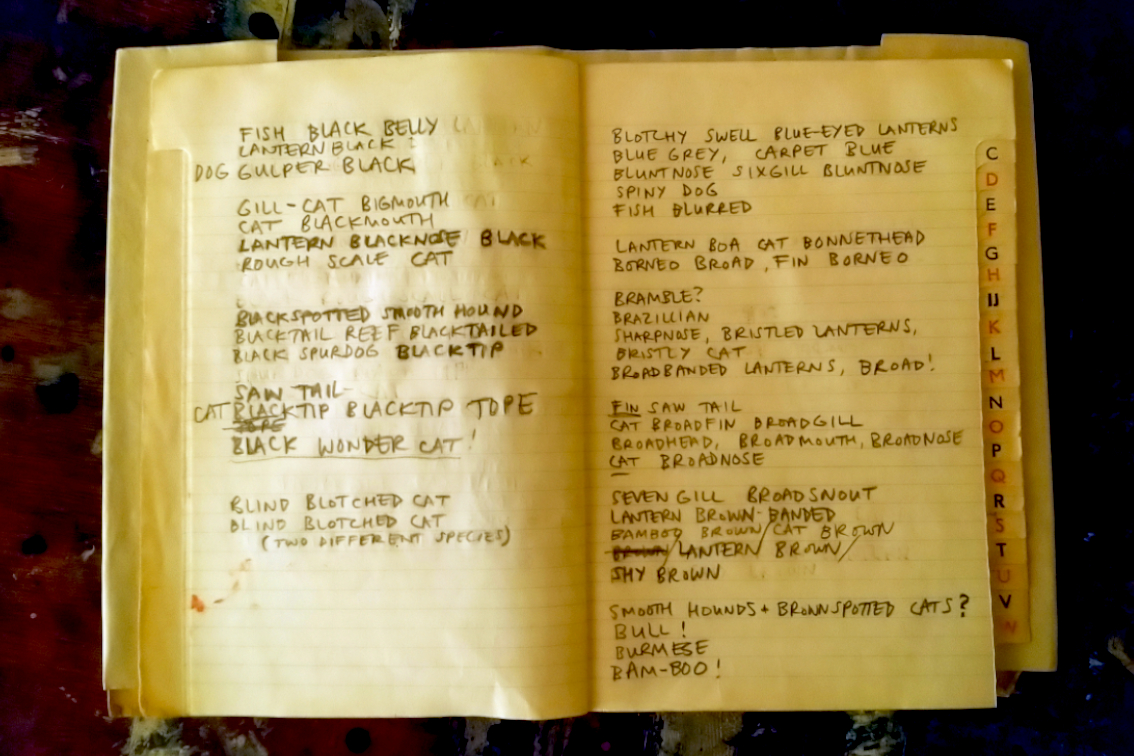 FISH BLACK BELLY
LANTERN BLACK ?
DOG GULPER BLACK
GILL-CAT BIGMOUTH
CAT BLACKMOUTH
LANTERN BLACKNOSE BLACK
ROUGH SCALE CAT
BLACKSPOTTED SMOOTH HOUND
BLACKTAIL REEF BLACKTAILED
BLACK SPURDOG BLACKTIP
SAW TAIL-
CAT BLACKTIP BLACKTIP TOPE
BLACK WONDER CAT!
BLIND BLOTCHED CAT
BLIND BLOTCHED CAT
(TWO DIFFERENT SPECIES)
BLOTCHY SWELL BLUE-EYED LANTERNS
BLUE GREY, CARPET BLUE
BLUNTNOSE SIXGILL BLUNTNOSE
SPINY DOG
FISH BLURRED
LANTERN BOA CAT BONNETHEAD
BORNEO BROAD, FIN BORNEO
BRAMBLE?
BRAZILLIAN
SHARPNOSE, BRISTLED LANTERNS,
BRISTLY CAT
BROADBANDED LANTERNS, BROAD!
FIN SAW TAIL
CAT BROADFIN BROADGILL
BROADHEAD, BROADMOUTH, BROADNOSE
CAT BROADNOSE
SEVEN GILL BROADSNOUT
LANTERN BROWN-BANDED
BAMBOO BROWN/CAT BROWN
BROWN/LANTERN BROWN/
SHY BROWN
SMOOTH HOUNDS + BROWNSPOTTED CATS?
BULL!
BURMESE
BAM-BOO!
C
D
E
F
G
H
IJ
K
L
M
N
O
P
Q
R
S
T
U
V
W